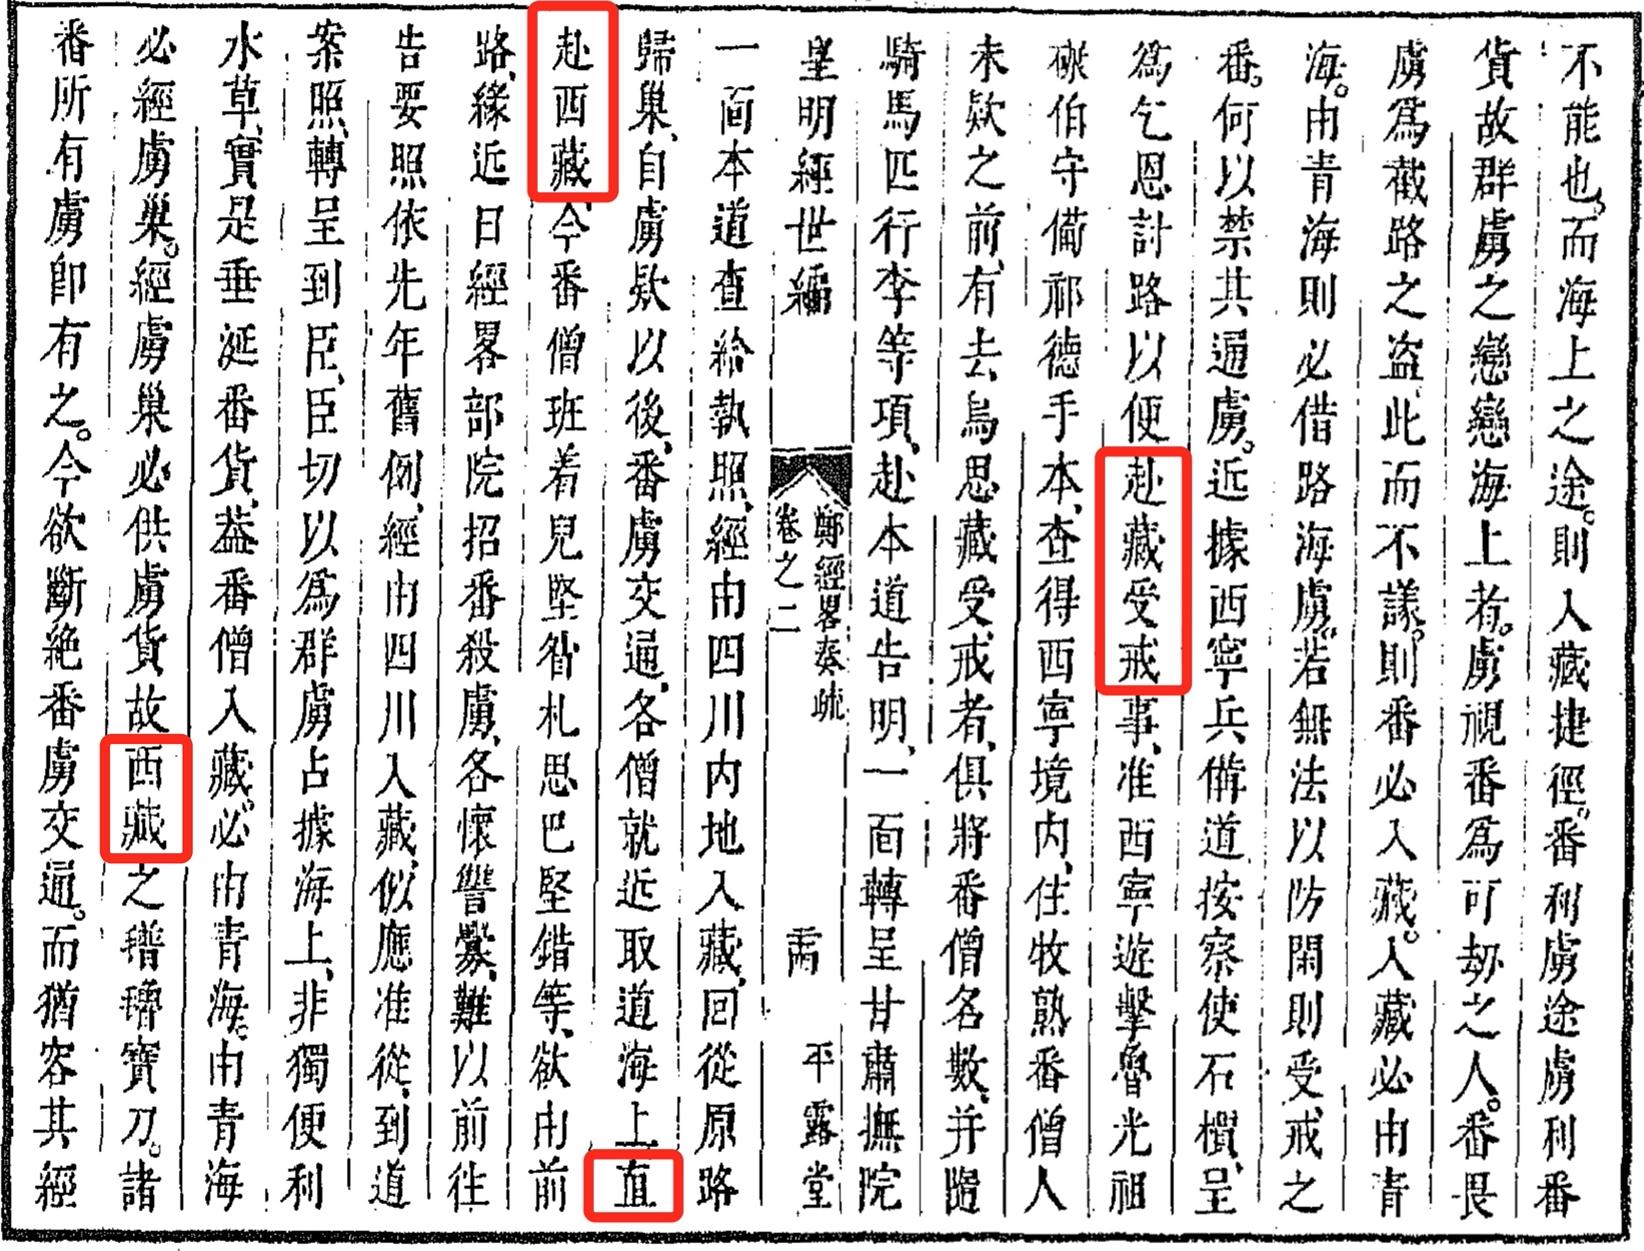 不能也。而海上之途。則入藏捷徑。番利虜途虜利番
貨故群虜之戀戀海上者。虜視番爲可刼之人。番畏
虜爲截路之盜此而不議。則番必入藏。入藏必由青
海。由青海則必借路海虜。若無法以防閑則受戒之
番。何以禁其通虜。近據西寧兵備道按察使石檟、呈
爲乞恩討路以便赴藏受戒事、准西寧遊擊魯光祖
碾伯守備祁德手本、查得西寧境内、住牧熟番僧人
未欵之前、有去烏思藏受戒者、俱將番僧名數、并隨
騎馬匹行李等項、赴本道告明、一面轉呈甘肅撫院
皇明經世編
鄭經畧奏疏
卷之二
平露堂
一面本道查給執照、經由四川内地入藏、回從原路
歸巢、自虜欵以後、番虜交通、各僧就近取道海上直
赴西藏、今番僧班着兒堅昝札思巴堅錯等、欲由前
路、緣近日經畧部院招番殺虜、各懷讐釁、難以前往
告要照依先年舊例、經由四川入藏、似應准從、到道
案照、轉呈到臣、臣切以爲群虜占據海上、非獨便利
水草、實是垂涎番貨、葢番僧入藏。必由青海。由青海
必經虜巢。經虜巢必供虜貨故西藏之氆氌寶刀。諸
番所有虜即有之。今欲斷絶番虜交通。而猶容其經